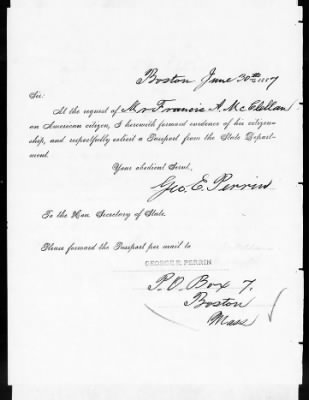 Boston June 30th 1887
Sir:
At the request of Mr Francis A. McClellan
an American citizen, I herewith forward evidence of his citizen-
ship, and respectfully solicit a Passport from the State Depart-
ment.
Your obedient Servt,
Geo. E. Perrin
To the Hon Secretary of State.
Please forward the Passport per mail to
GEORGE E. PERRIN
P.O. Box 7.
Boston
Mass